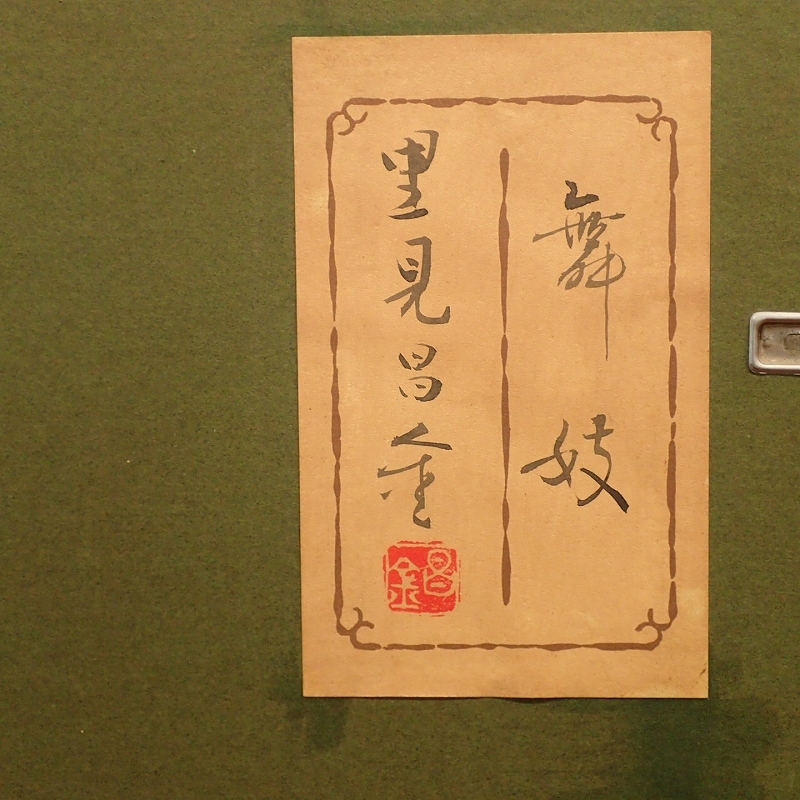 舞妓
里見昌金
昌金